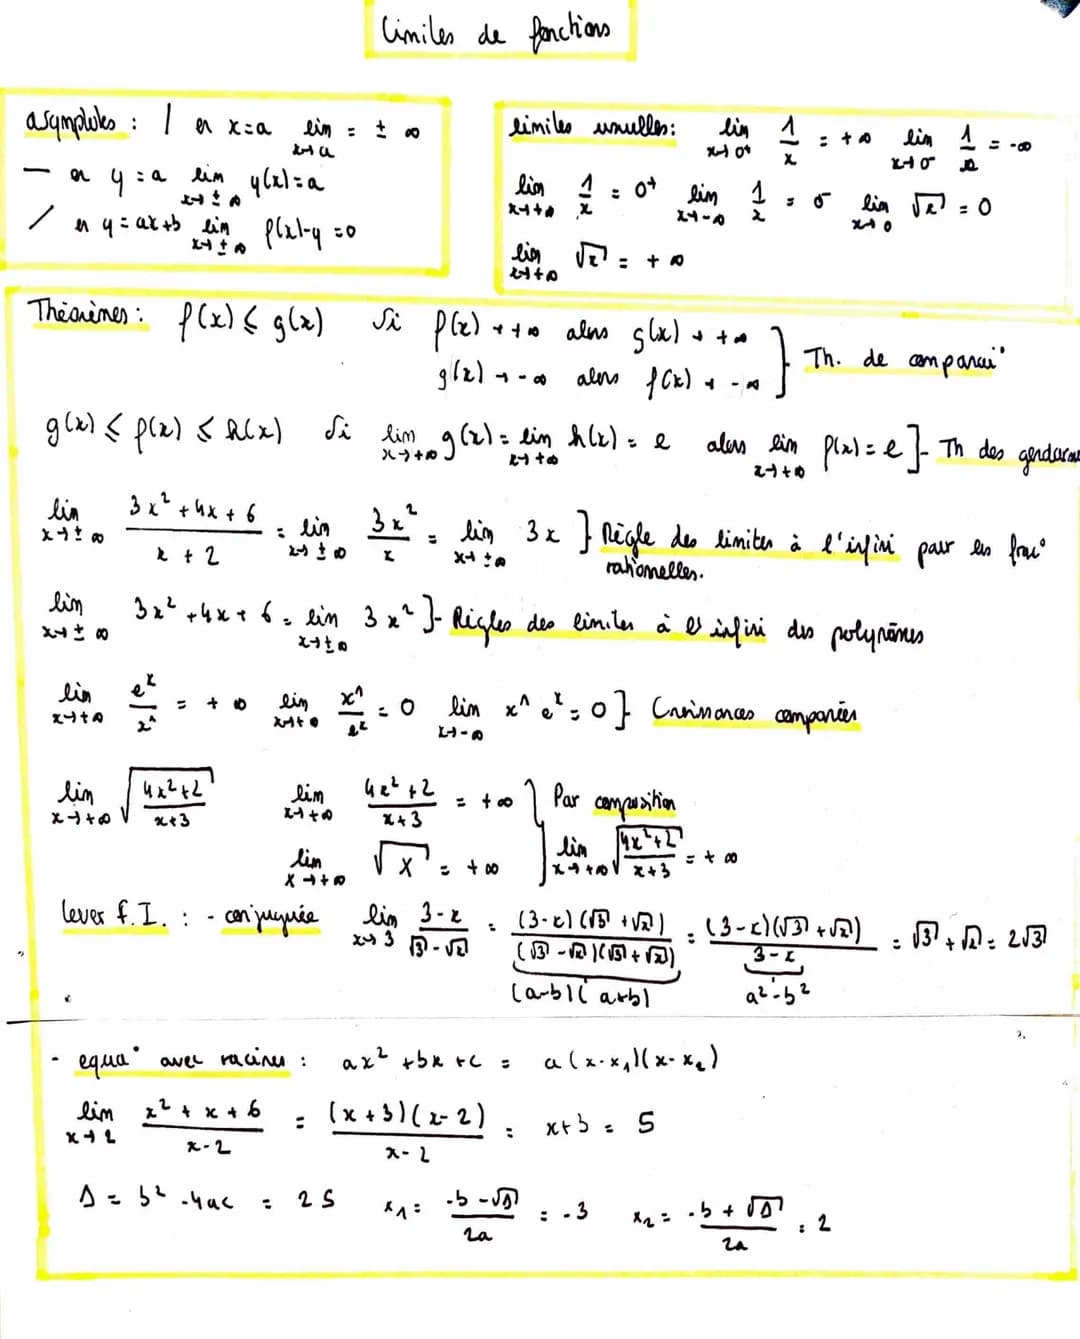 Limites de fonctions
asymptotes : | en x=a lim x→a = ± ∞
— en y = a lim x→±∞ y(x) = a
/ en y = ax+b lim x→±∞ f(x)-y = 0
limites usuelles : lim x→0⁺ 1/x = +∞ lim x→0⁻ 1/x = -∞
lim x→+∞ 1/x = 0⁺ lim x→-∞ 1/x = 0⁻ lim x→0 √x = 0
lim x→+∞ √x = +∞
Théorèmes : f(x) ≤ g(x) Si f(x) → +∞ alors g(x) → +∞
g(x) → -∞ alors f(x) → -∞ } Th. de comparai°
g(x) ≤ f(x) ≤ h(x) Si lim x→+∞ g(x) = lim x→+∞ h(x) = l alors lim x→+∞ f(x) = l ]- Th des gendarm
lim x→±∞ (3x² + 4x + 6)/(x + 2) = lim x→±∞ 3x²/x = lim x→±∞ 3x } Règle des limites à l'infini pour les frac°
rationnelles.
lim x→±∞ 3x² + 4x + 6 = lim x→±∞ 3x² ]- Règles des limites à l'infini des polynômes
lim x→+∞ eˣ/xⁿ = +∞ lim x→+∞ xⁿ/eˣ = 0 lim x→-∞ xⁿ eˣ = 0 } Croissances comparées
lim x→+∞ √((4x²+2)/(x+3)) lim x→+∞ (4x²+2)/(x+3) = +∞ } Par composition
lim X→+∞ √X = +∞ lim x→+∞ √((4x²+2)/(x+3)) = +∞
lever f.I. : - conjuguée lim x→3 (3-x)/(√3-√x) = (3-x)(√3+√x)/((√3-√x)(√3+√x)) = (3-x)(√3+√x)/(3-x) = √3+√x = 2√3
(a-b)(a+b) a²-b²
- equa° avec racines : ax² + bx + c = a(x-x₁)(x-x₂)
lim x→2 (x² + x + 6)/(x-2) = (x+3)(x-2)/(x-2) = x+3 = 5
Δ = b² - 4ac = 25 x₁ = (-b-√Δ)/2a = -3 x₂ = (-b+√Δ)/2a = 2